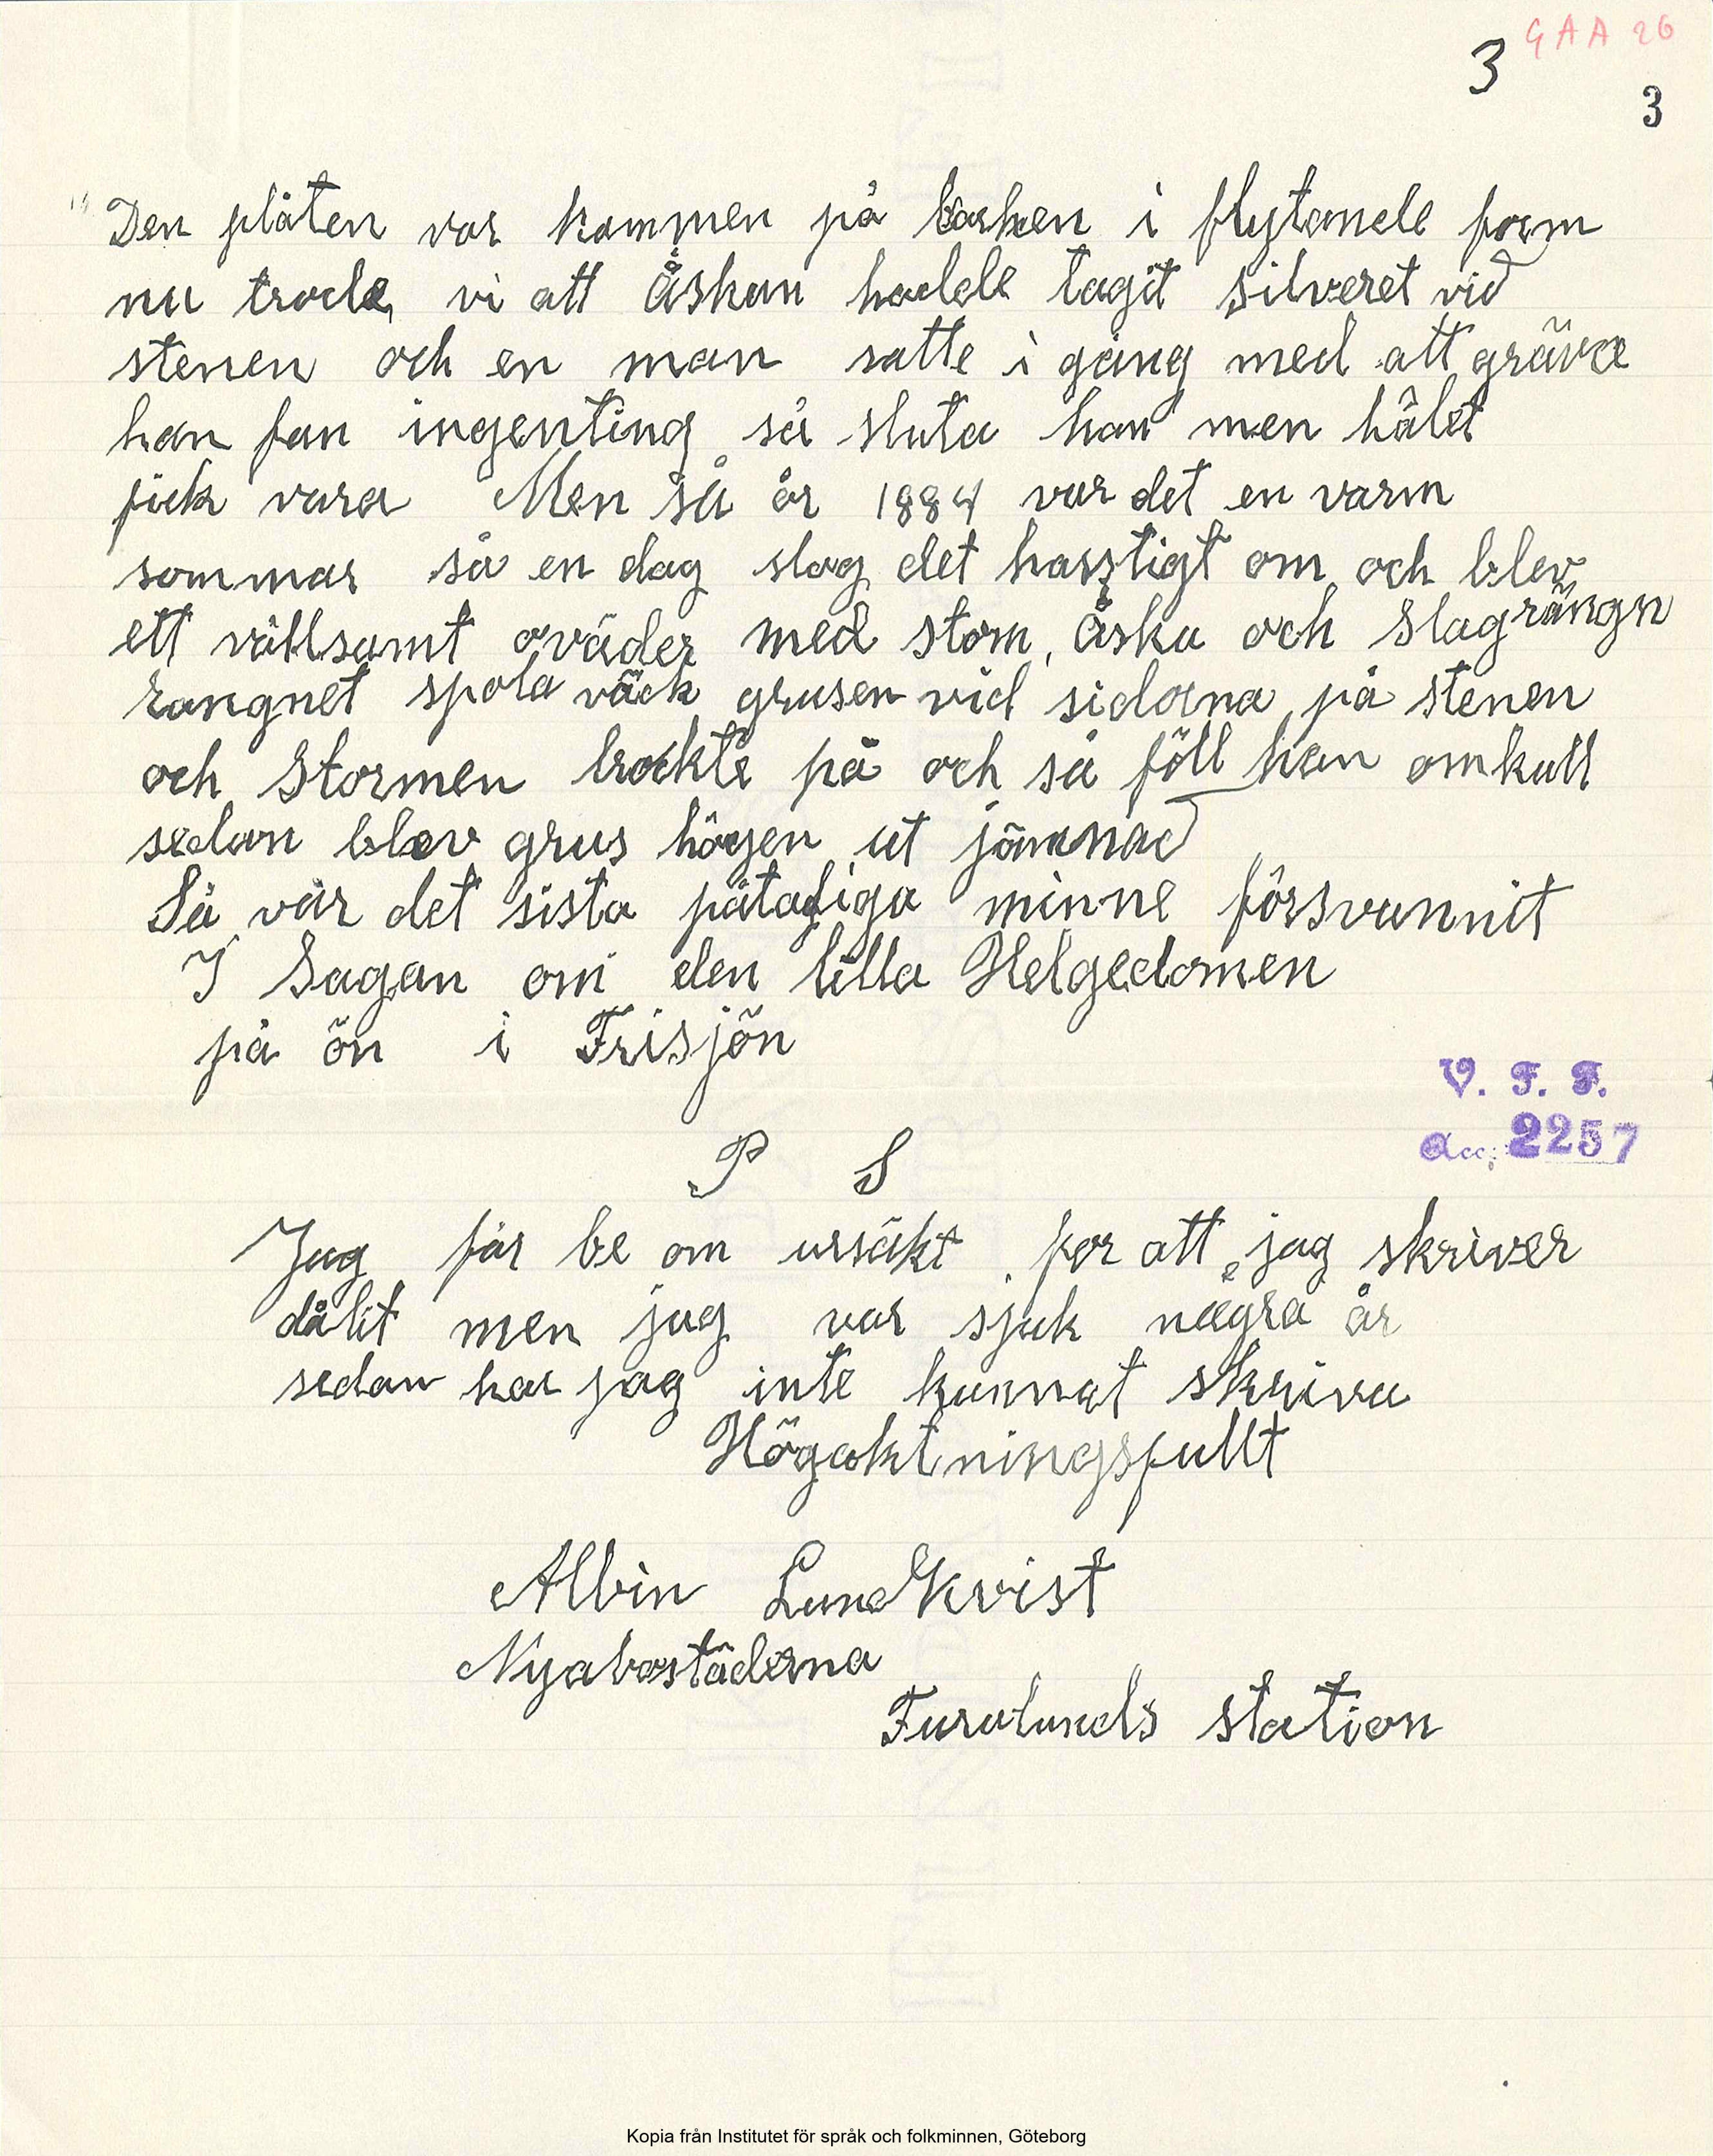 GAA 26
3
3
" Den plåten var kommen på barken i flytande form
nu trode vi att Åskan hadde tagit silveret vid
stenen och en man satte i gång med att gräva
han fan ingenting så sluta han men hålet
fick vara Men så år 1884 var det en varm
sommar så en dag slog det hasstigt om och blev
ett vållsamt oväder med stom, Åska och Slagrängn
rangnet spola väck grusen vid sidorna på stenen
och Stormen trockte på och så föll han omkull
sedan blev grus högen ut jämnad
Så var det sista påtagliga minne försvunnit
I Sagan om den lilla Helgedomen
på ön i Frisjön
V. F. F.
Acc. 2257
P S
Jag får be om ursäkt for att jag skriver
dålit men jag var sjuk några år
sedan har jag inte kunnat skriva
Högaktningsfullt
Albin Lundkvist
Nyabostäderna
Furulunds station
Kopia från Institutet för språk och folkminnen, Göteborg